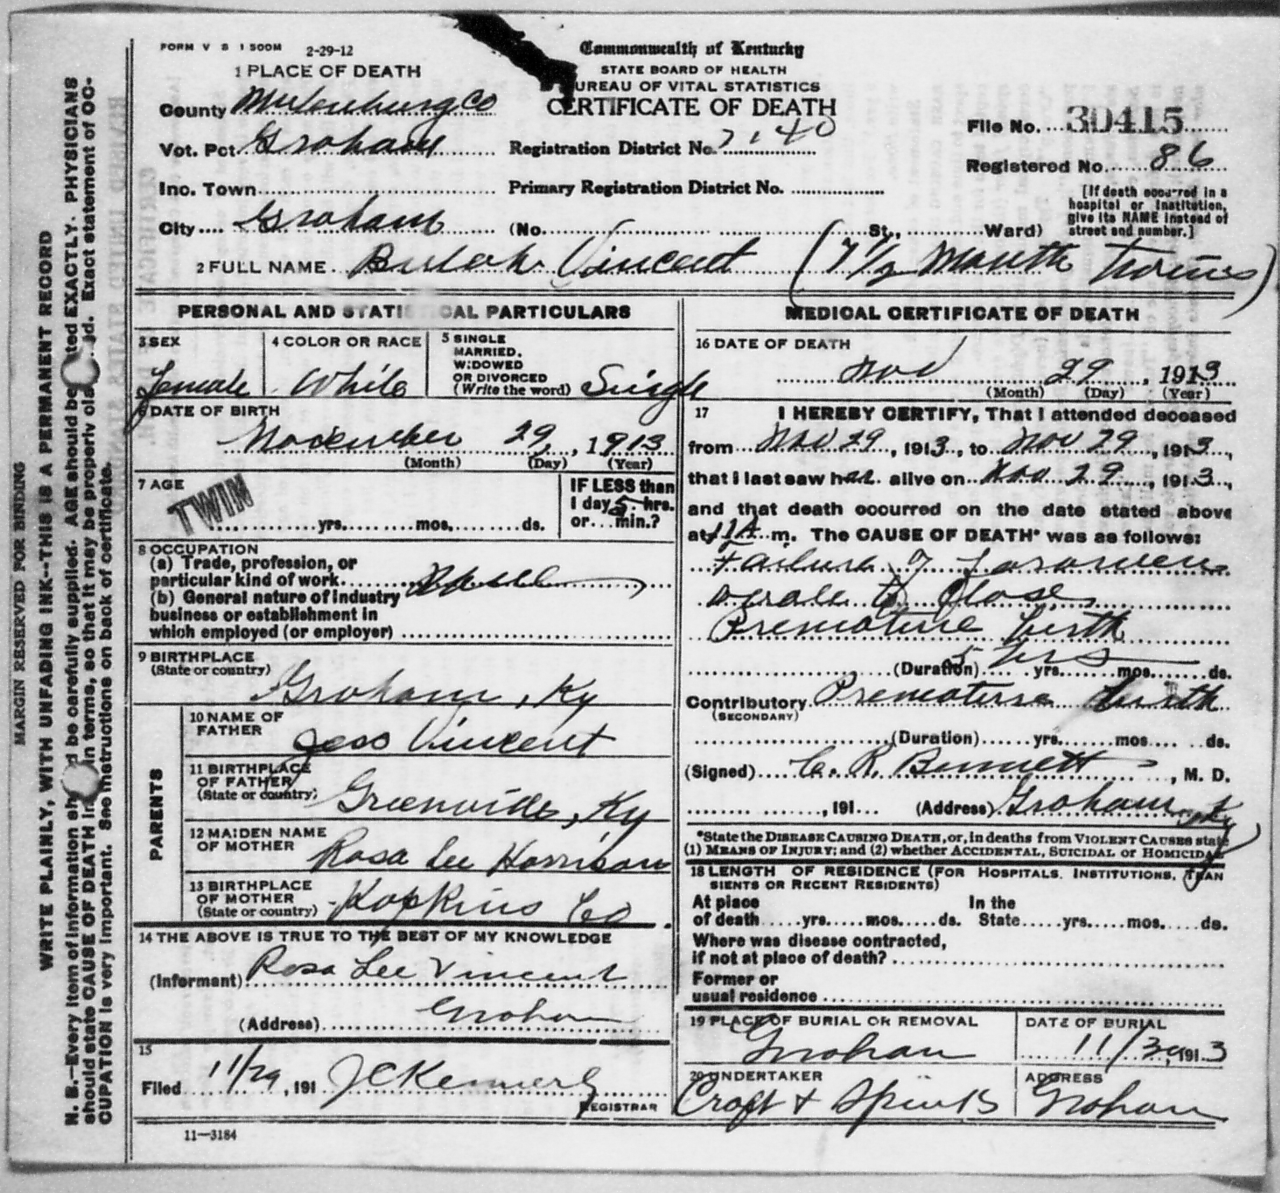 FORM V S 1 500M 2-29-12
Commonwealth of Kentucky
STATE BOARD OF HEALTH
BUREAU OF VITAL STATISTICS
CERTIFICATE OF DEATH
1 PLACE OF DEATH
County Muhlenburg Co
Vot. Pct. Graham
Registration District No. 7140
File No. 30415
Registered No. 86
Inc. Town
Primary Registration District No.
[If death occurred in a
hospital or institution,
give its NAME instead of
street and number.]
City Graham (No. St., Ward)
2 FULL NAME Bulah Vincent (7 1/2 Month twins)
PERSONAL AND STATISTICAL PARTICULARS
3 SEX
Female
4 COLOR OR RACE
White
5 SINGLE
MARRIED,
WIDOWED
OR DIVORCED
(Write the word) Single
6 DATE OF BIRTH
November 29, 1913
(Month) (Day) (Year)
7 AGE
TWIN
yrs. mos. ds.
IF LESS than
1 day, 5 hrs.
or ... min.?
8 OCCUPATION
(a) Trade, profession, or
particular kind of work
(b) General nature of industry
business or establishment in
which employed (or employer)
9 BIRTHPLACE
(State or country)
Graham, Ky
PARENTS
10 NAME OF
FATHER
Jess Vincent
11 BIRTHPLACE
OF FATHER
(State or country)
Greenville, Ky
12 MAIDEN NAME
OF MOTHER
Rosa Lee Harrison
13 BIRTHPLACE
OF MOTHER
(State or country)
Hopkins Co
14 THE ABOVE IS TRUE TO THE BEST OF MY KNOWLEDGE
(Informant) Rosa Lee Vincent
(Address) Graham
15
Filed 11/29, 191 J C Kennerly
REGISTRAR
11-3184
MEDICAL CERTIFICATE OF DEATH
16 DATE OF DEATH
Nov 29, 1913
(Month) (Day) (Year)
17 I HEREBY CERTIFY, That I attended deceased
from Nov 29, 1913, to Nov 29, 1913,
that I last saw her alive on Nov 29, 1913,
and that death occurred on the date stated above
at 11 A m. The CAUSE OF DEATH* was as follows:
Failure of Foramen
ovale to Close
Premature birth
(Duration) 5 hrs yrs. mos. ds.
Contributory Premature birth
(SECONDARY)
(Duration) yrs. mos. ds.
(Signed) C. R. Bennett, M. D.
, 191 (Address) Graham, Ky
*State the DISEASE CAUSING DEATH, or, in deaths from VIOLENT CAUSES state
(1) MEANS OF INJURY; and (2) whether ACCIDENTAL, SUICIDAL or HOMICIDAL
18 LENGTH OF RESIDENCE (FOR HOSPITALS, INSTITUTIONS, TRAN
SIENTS OR RECENT RESIDENTS)
At place
of death yrs. mos. ds.
In the
State yrs. mos. ds.
Where was disease contracted,
if not at place of death?
Former or
usual residence
19 PLACE OF BURIAL OR REMOVAL
Graham
DATE OF BURIAL
11/30, 1913
20 UNDERTAKER
Croft & Spinks
ADDRESS
Graham
MARGIN RESERVED FOR BINDING
WRITE PLAINLY, WITH UNFADING INK--THIS IS A PERMANENT RECORD
N. B.--Every item of information should be carefully supplied. AGE should be stated EXACTLY. PHYSICIANS
should state CAUSE OF DEATH in terms, so that it may be properly classified. Exact statement of OC-
CUPATION is very important. See instructions on back of certificate.